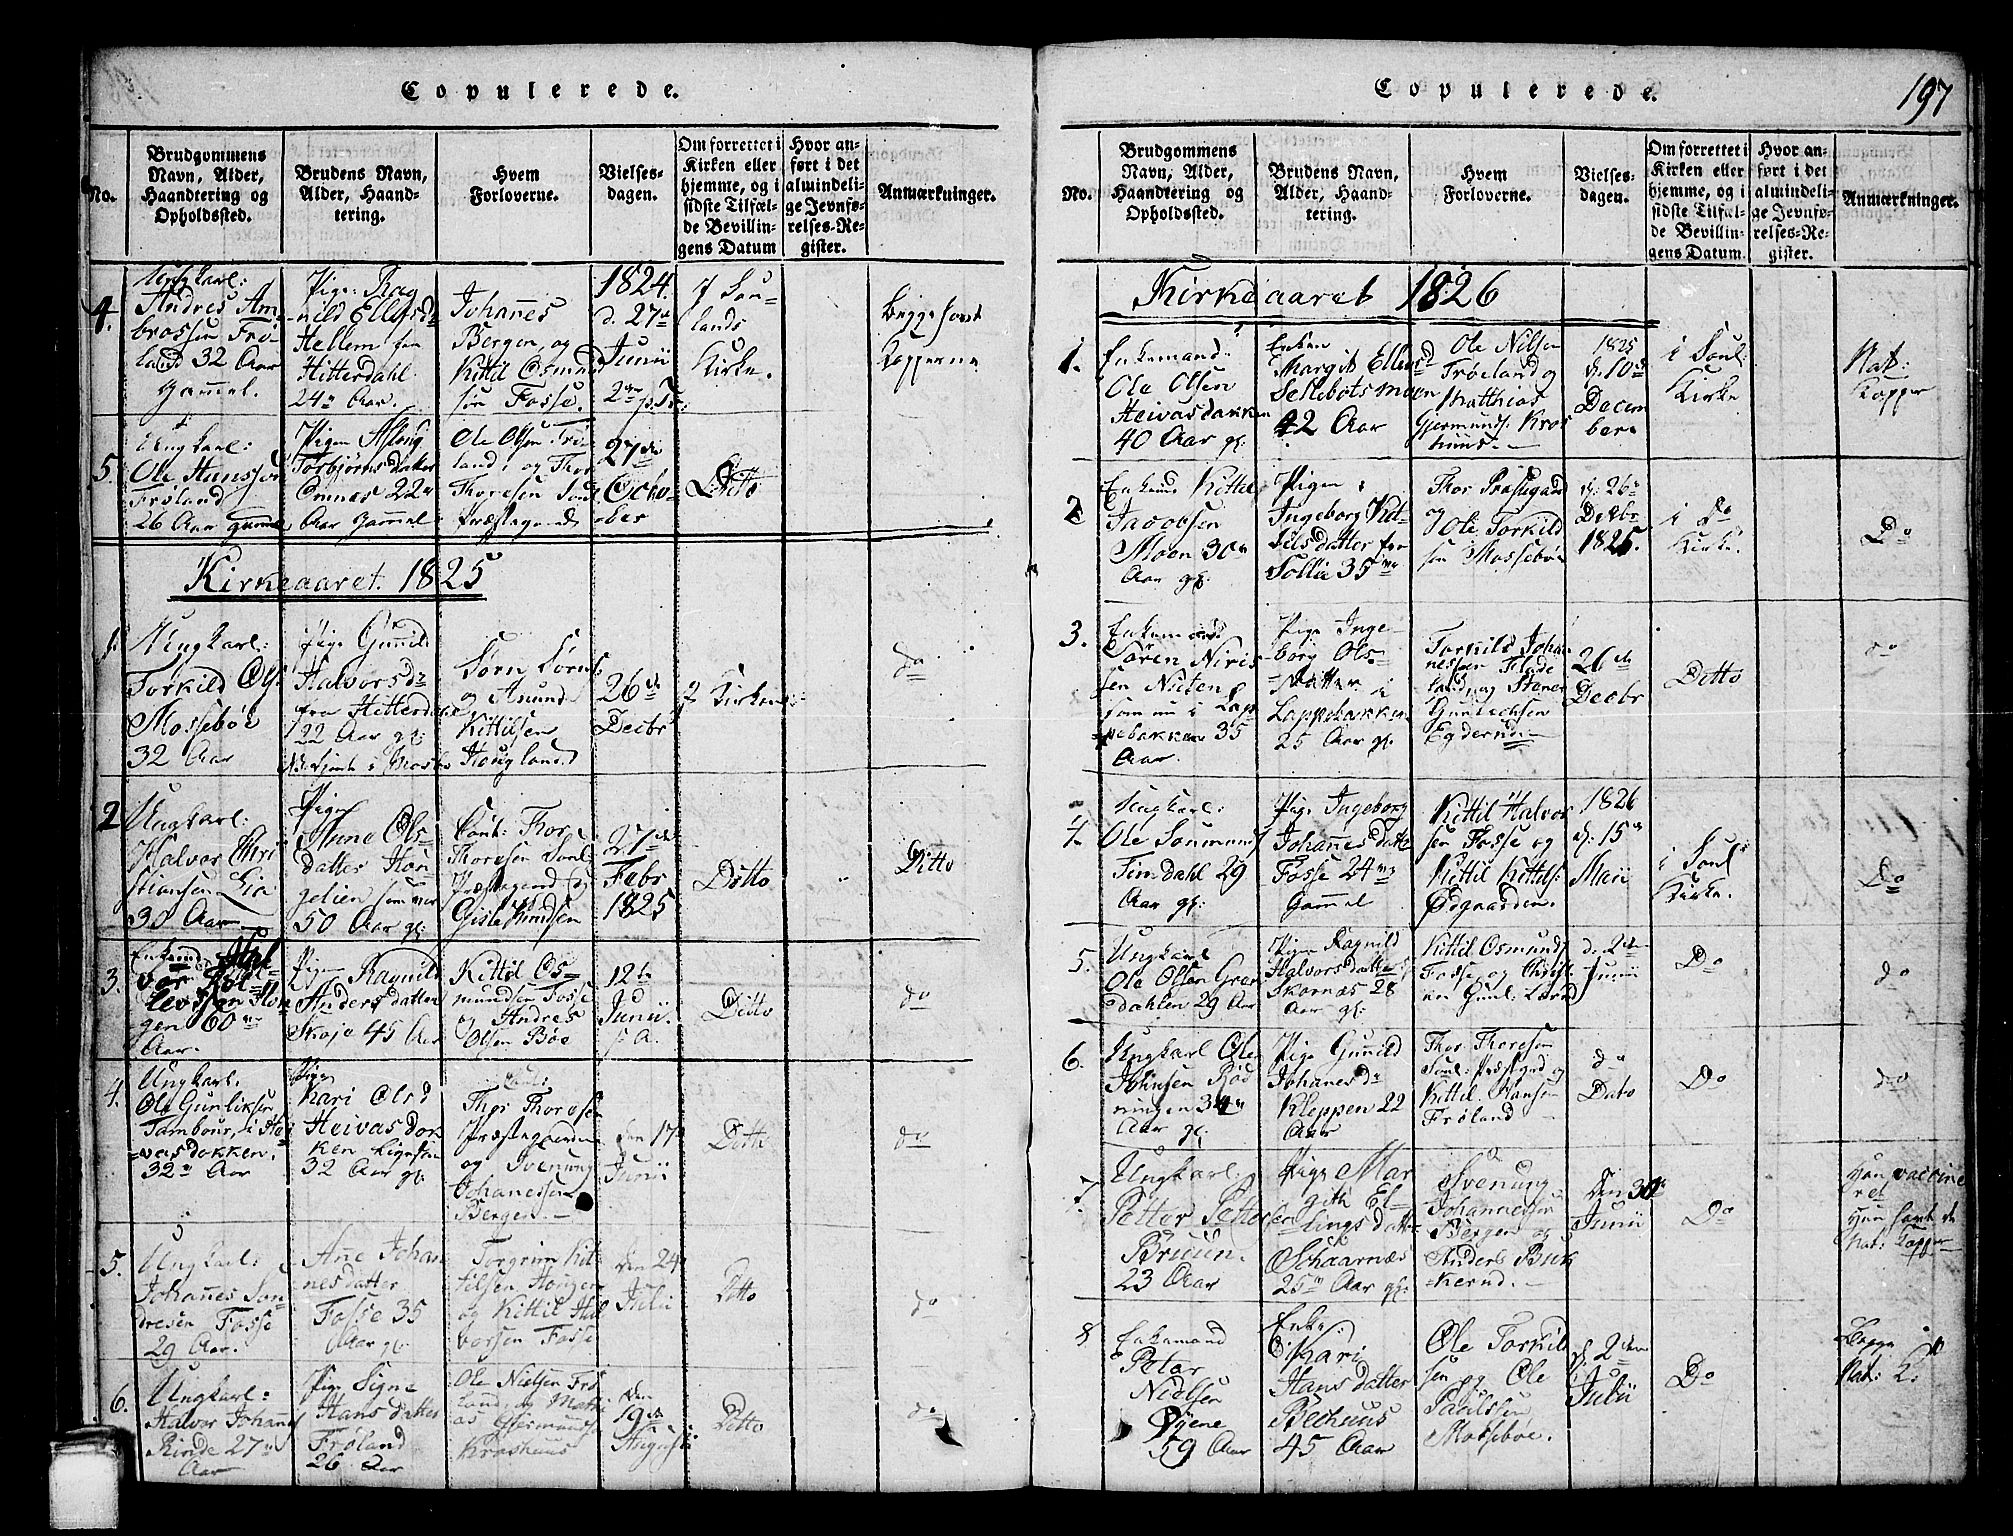 Copulerede.
No.
Brudgommens
Navn, Alder,
Haandtering og
Opholdssted.
Brudens Navn,
Alder, Haand-
tering.
Hvem
Forloverne.
Vielses-
dagen.
Om forrettet i
Kirken eller
hjemme, og i
sidste Tilfæl-
de Bevillin-
gens Datum
Hvor an-
ført i det
almindeli-
ge Jevnfø-
relses-Re-
gister.
Anmærkninger.
4.
Ungkarl:
Andres Am-
brossen Frø-
land 32 Aar
gammel.
Pige: Rag
nild Ellefsd
Hellem fra
Hitterdahl
24 Aar.
Johannes
Bergen, og
Kittil Osmund
sen Fosse.
1824.
d. 27de
Junii
I Sou-
lands
Kirke.
begge havt
Kopperne
5.
Ungkarl:
Ole Hansen
Frøland
26 Aar gammel
Pigen Asloug
Torbjørnsdatter
Omnæs 22
Aar gammel
Ole Olsen Frø-
land, og Thor
Thoresen Soul
Præstegaard
27de
Octo-
ber
Ditto
Kirkeaaret 1825
1.
Ungkarl:
Torkild Ols
Mossebøe
32 Aar
Pige Gunild
Halvorsdr
fra Hitterdahl
22 Aar gl:
Sørn Sørns
og Amund
Kittilsen
Hougland
26de
Decbr
I Kirken
do
2
Ungkarl:
Halvor Chri
stiansen Lia
30 Aar
Pige
Anne Ols
datter Hou
gelien
50 Aar gl:
Thor
Thoresen Soul
Præstegaard og
Gisle Knudsen
27de
Febr
1825
Ditto
Ditto
3.
Enkemand Hal
vor Kol-
levsen Hou
gen 60
Aar.
Pige Ragnild
Andersdatter
Skoje 45 Aar
Kittil Os-
mundsen Fosse
og Andres
Olsen Bøe
12te
Junii
s. A.
Ditto
do
4.
Ungkarl:
Ole Gunliksen
Tambour, i Hei
vasdokken.
32 Aar
Pige
Kari Olsd
Heivasdok
ken
32 Aar gl:
Thor Thoresen
Præstegaarden
og Svenung
Johanessen
Bergen.
den 17
Junii
Ditto
do
5.
Ungkarl:
Johannes Son-
dresen Fosse
29 Aar.
Anne Johan
nesdatter
Fosse 35
Aar gl.
Torgrim Kit
tilsen Hougen
og Kittil Hal
vorsen Fosse
den 24
Julii
Ditto
do
6.
Ungkarl:
Halvor Johannes
Rinde 27
Aar
Pige Signe
Hansdatter
Frøland
26 Aar
Ole Nielsen Frø
land, og Mathi
as Gjermunds
Kroshuus
den
19de
Augusti
Ditto
do
Copulerede.
197
No.
Brudgommens
Navn, Alder,
Haandtering og
Opholdssted.
Brudens Navn,
Alder, Haand-
tering.
Hvem
Forloverne.
Vielses-
dagen.
Om forrettet i
Kirken eller
hjemme, og i
sidste Tilfæl-
de Bevillin-
gens Datum.
Hvor an-
ført i det
almindeli-
ge Jevnfø-
relses-Re-
gister.
Anmærkninger.
Kirkeaaret 1826
1.
Enkemand
Ole Olsen
Heivasdakken
40 Aar gl.
Enken
Margit Ellevsd
Sellebotsmoen
42 Aar
Ole Nilsen
Frøeland og
Matthias
Gjermunds. Kros
huus.
1825
d. 10de
Decem
ber
i Soul:
Kirke
Nat:
Kopper
2
Enkem Kittil
Jacobsen
Moen 30
Aar gl.
Pigen
Ingeborg Kit-
tilsdatter fra
35
Thor Præstegaard
og
Ole Torkild
sen Mossebøe
d. 26
Decbr
1825.
i Do
Kirke.
Do
3.
Enkemand
Søren Niris
sen Nuten
som nu i Lap
pebakken 35
Aar.
Pige Inge-
borg Ols-
datter i
Lappebakken
25 Aar gl.
Torkild Johan
nessen Flade
land og Stener
Gunlechsen
Egderud.
26de
Decbr
Ditto
do
4.
Ungkarl:
Ole Soumund
Timdahl 29
Aar gl:
Pige Ingeborg
Johannesdatter
Fosse 24
Gammel
Kittil Halvor
sen Fosse og
Kittil Kittils:
Ødgaarden.
1826
d: 15
Maii
i Soul:
Kirke.
Do
5.
Ungkarl
Ole Olsen Gran
dahlen 29 Aar
Pige Ragnild
Halvorsdatter
Skarnæs 28
Aar gl:
Kittil Osmunds
Fosse og Christi
an Gunl:
d. 2de
Junii
Do
do
6.
Ungkarl Ole
Johnsen Rød
ningen 34
Aar gl:
Pige Gunild
Johanesdr
Kleppen 22
Aar
Thor Thoresen
Soul: Præstgrd og
Kittil Hansen
Frøland
do
Dato
Do
do
7.
Ungkarl:
Petter Petter
sen
Bruun.
23 Aar
Pige Mar
gith El-
lingsdatter
Schaarnæs
25 Aar gl:
Svenung
Johannessen
Bergen og
Anders Buk
kerud.
Den 30
Junii
Do
han vaccine
ret
hun havt de
Nat: Kopper
8
Enkemand
Peter
Nielsen
Øjene
59 Aar
Enke:
Kari
Hansdatter
Bechuus
45 Aar
Ole Torkild
sen og Ole
Paulssen
Mossebøe.
d. 2den
Julii
Do
begge
Nat: K.